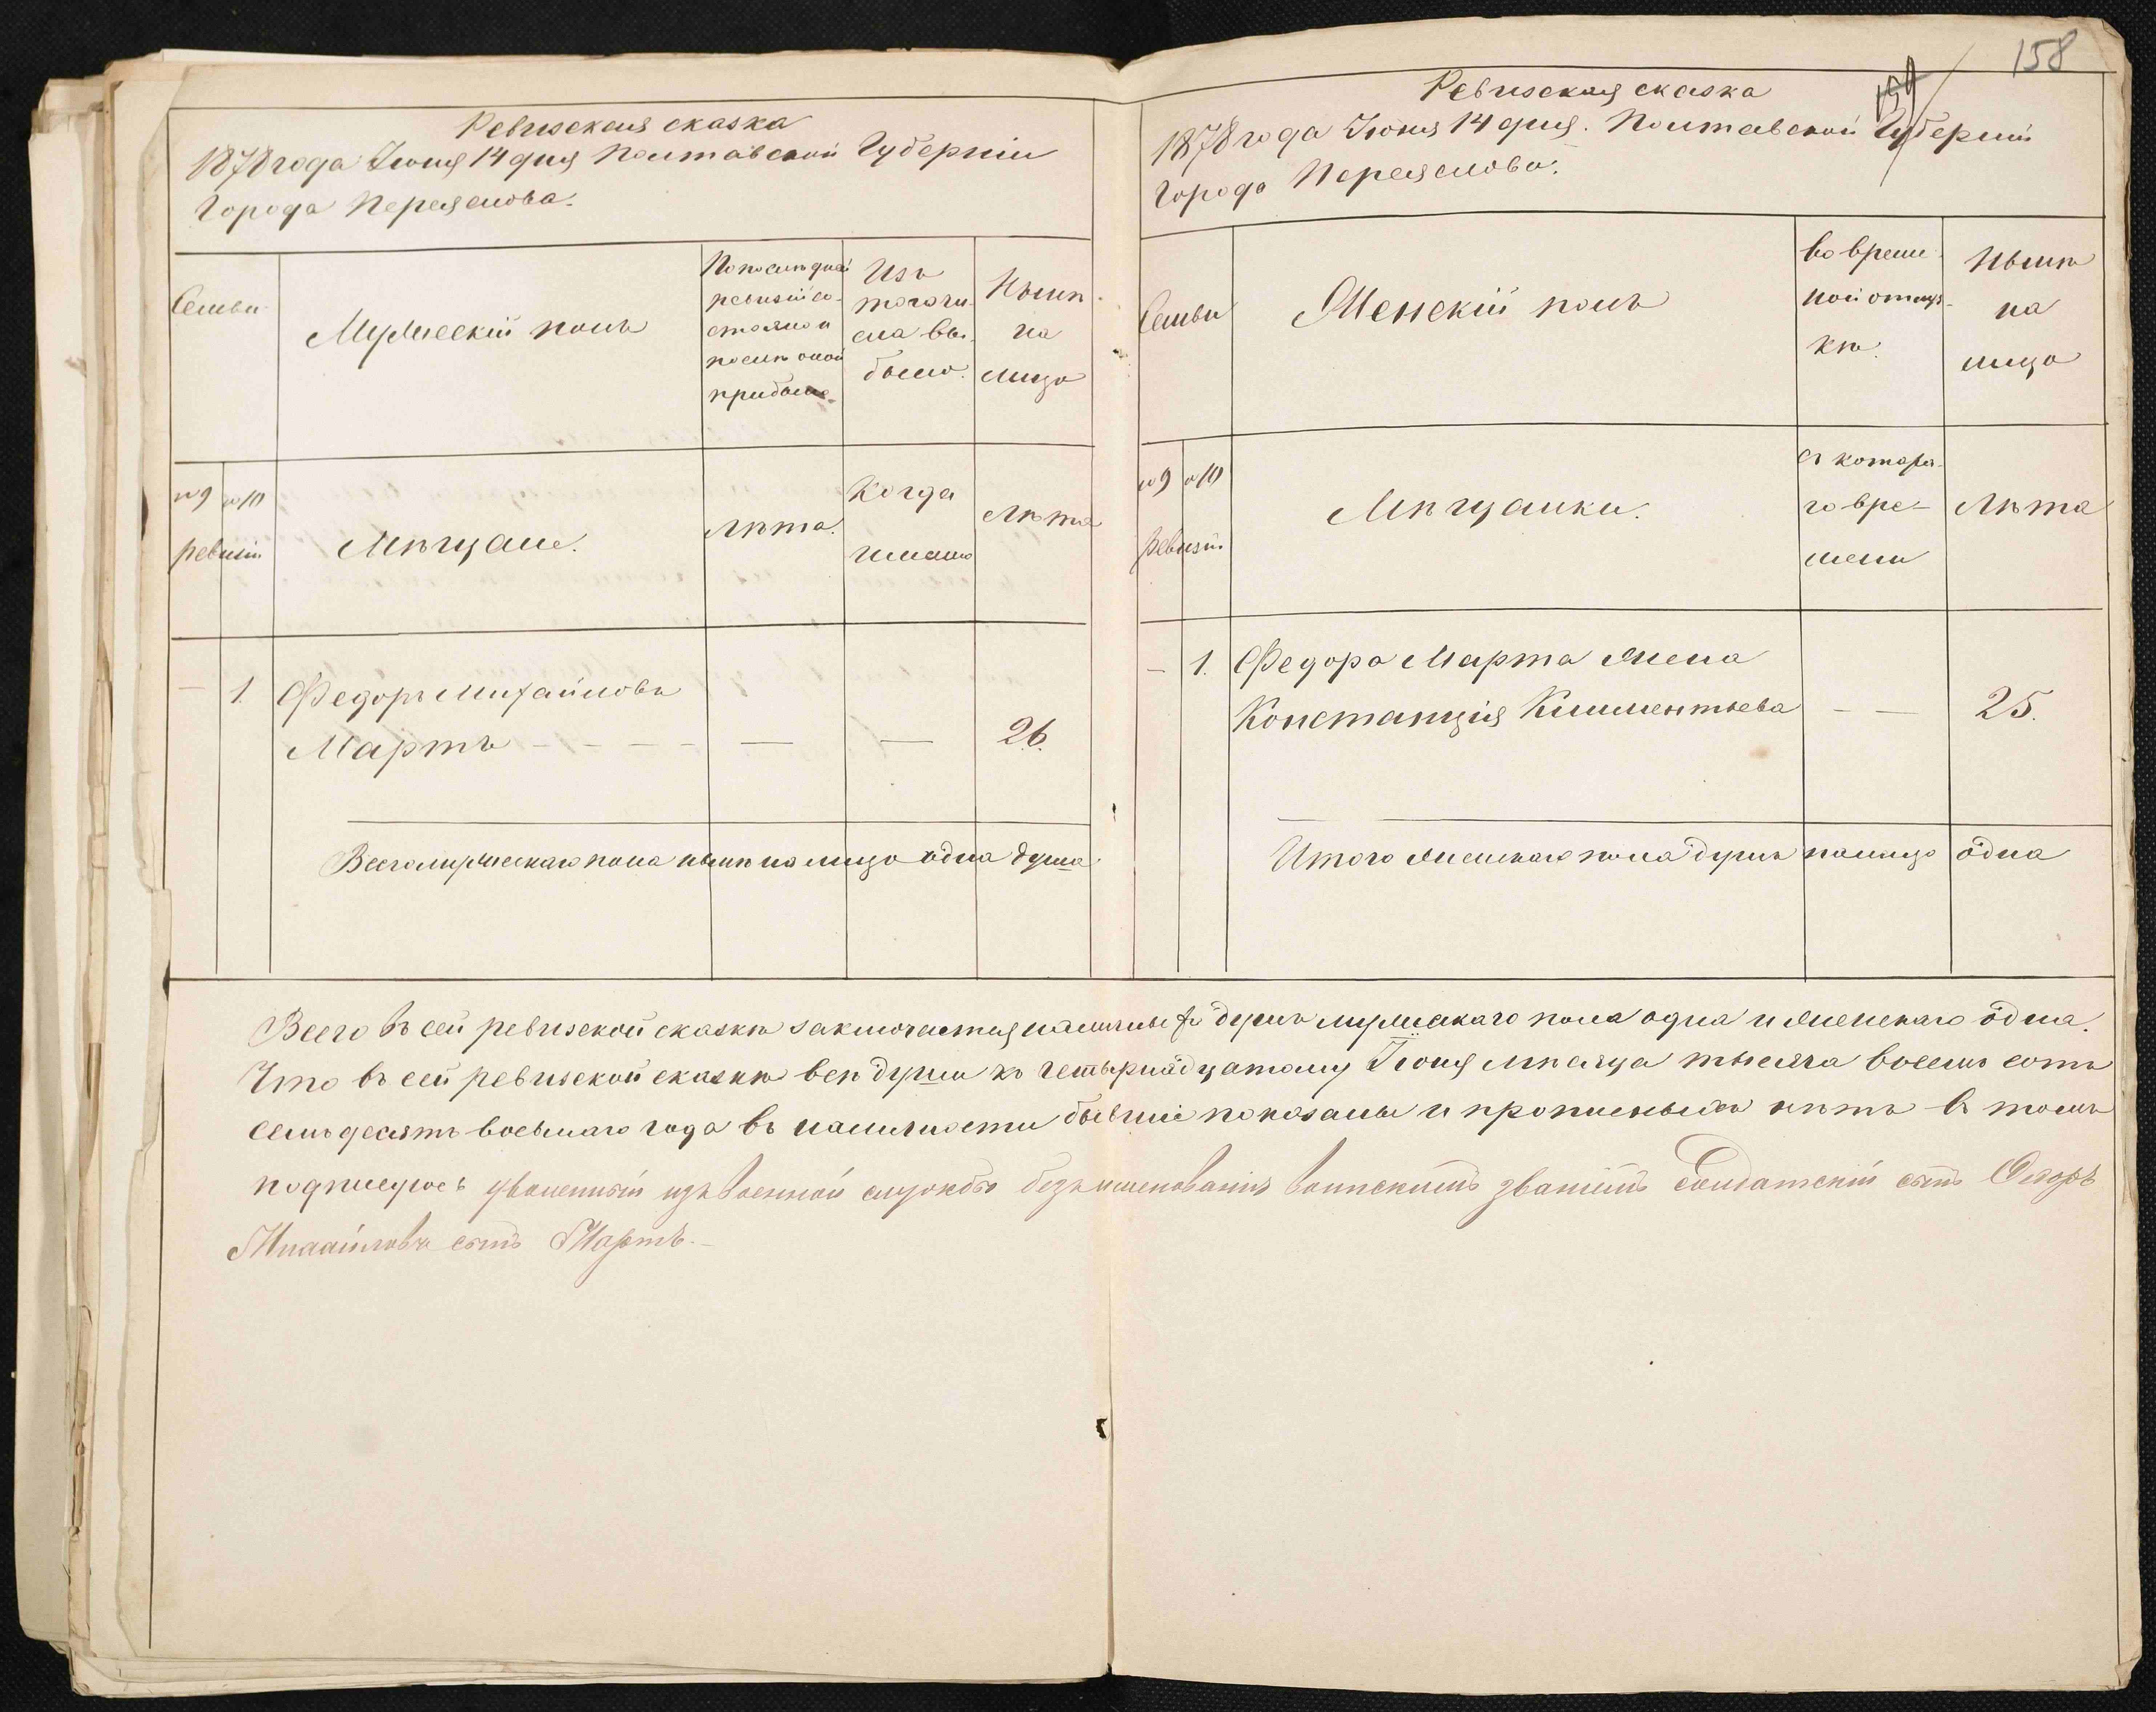 158
159
Ревизская сказка
1878 года Іюня 14 дня Полтавской Губерніи
Города Переяслова.
Семьи
Мужескій полъ
По последней
ревизіи со-
стояло и
после оной
прибыло
Изъ
того чи-
сла вы-
было.
Нынѣ
на
лицо
по 9 по 10
ревизіи
Мѣщане.
Лѣта.
Когда
именно
Лѣта
— 1. Федоръ Михайловъ
Мартъ — — — — — — 26.
Всего мужескаго пола нынѣ на лицо одна душа
Ревизская сказка
1878 года Іюня 14 дня. Полтавской Губерніи
Города Переяслова.
Семьи
Женскій полъ
Во времен-
ной отлуч-
кѣ.
Нынѣ
на
лицо
по 9 по 10
ревизіи
Мѣщанки.
съ котора-
го вре-
мени
Лѣта
— 1. Федора Марта жена
Констанція Климентьева — — 25.
Итого женскаго пола душъ на лицо одна
Всего въ сей ревизской сказкѣ заключается наличныхъ душъ мужескаго пола одна и женскаго одна.
Что въ сей ревизской сказкѣ всѣ души къ четырнадцатому Іюня мѣсяца тысяча восемь сотъ
семьдесятъ восьмаго года въ наличности бывшіе показаны и прописныхъ нѣтъ въ томъ
подписуюсь уволенный изъ военной службы безъ именованія воинскимъ званіемъ Солдатскій сынъ Федоръ
Михайловъ сынъ Мартъ.—